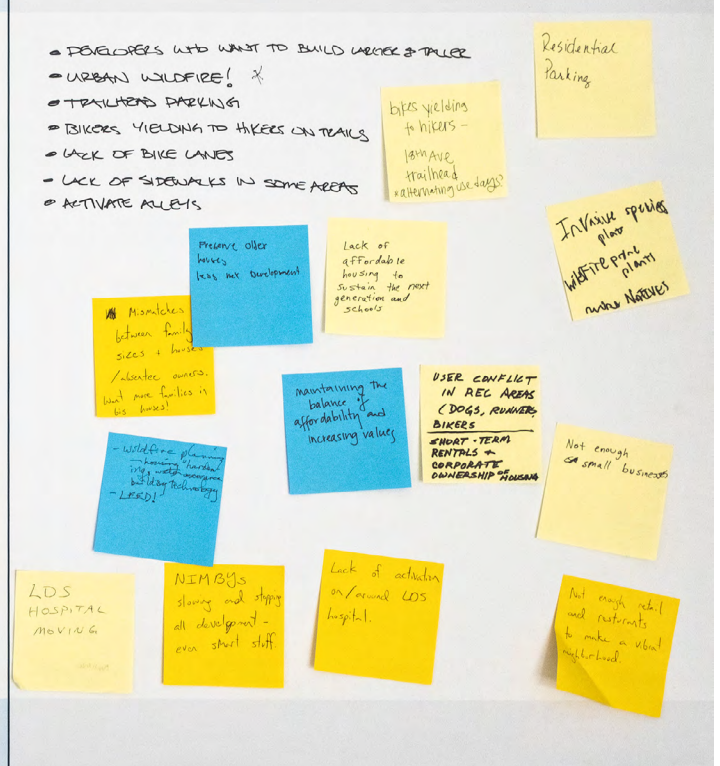 • DEVELOPERS WHO WANT TO BUILD LARGER & TALLER
• URBAN WILDFIRE!
• TRAILHEAD PARKING
• BIKERS YIELDING TO HIKERS ON TRAILS
• LACK OF BIKE LANES
• LACK OF SIDEWALKS IN SOME AREAS
• ACTIVATE ALLEYS
Residential
Parking
bikes yielding
to hikers –
18th Ave
trailhead
* alternating use days?
Invasive species
plants
wildfire prone
plants
NATIVES
Preserve older
houses
less new development
Lack of
affordable
housing to
sustain the next
generation and
schools
Mismatches
between family
sizes + houses
/absentee owners.
Want more families in
big houses!
maintaining the
balance of
affordability and
increasing values
USER CONFLICT
IN REC AREAS
(DOGS, RUNNERS,
BIKERS
SHORT-TERM
RENTALS +
CORPORATE
OWNERSHIP OF HOUSING
Not enough
small businesses
- Wildfire planning
building technology
- LEED!
LDS
HOSPITAL
MOVING
NIMBYs
slowing and stopping
all development –
even smart stuff.
Lack of activation
on/around LDS
hospital.
Not enough retail
and resturants
to make a vibrant
neighborhood.